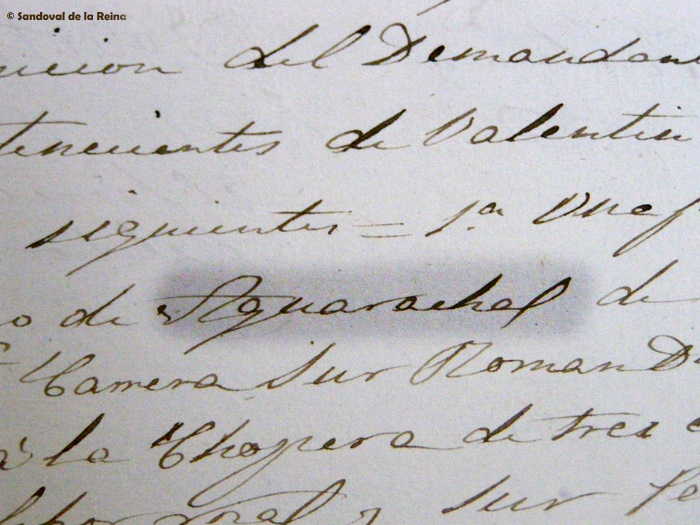 © Sandoval de la Reina
icion del Demandan
tenecientes de Valentin
siguientes = 1ª Una
o de Aguarachal de
Carrera Sur Roman D
á la Chopera de tres
sur